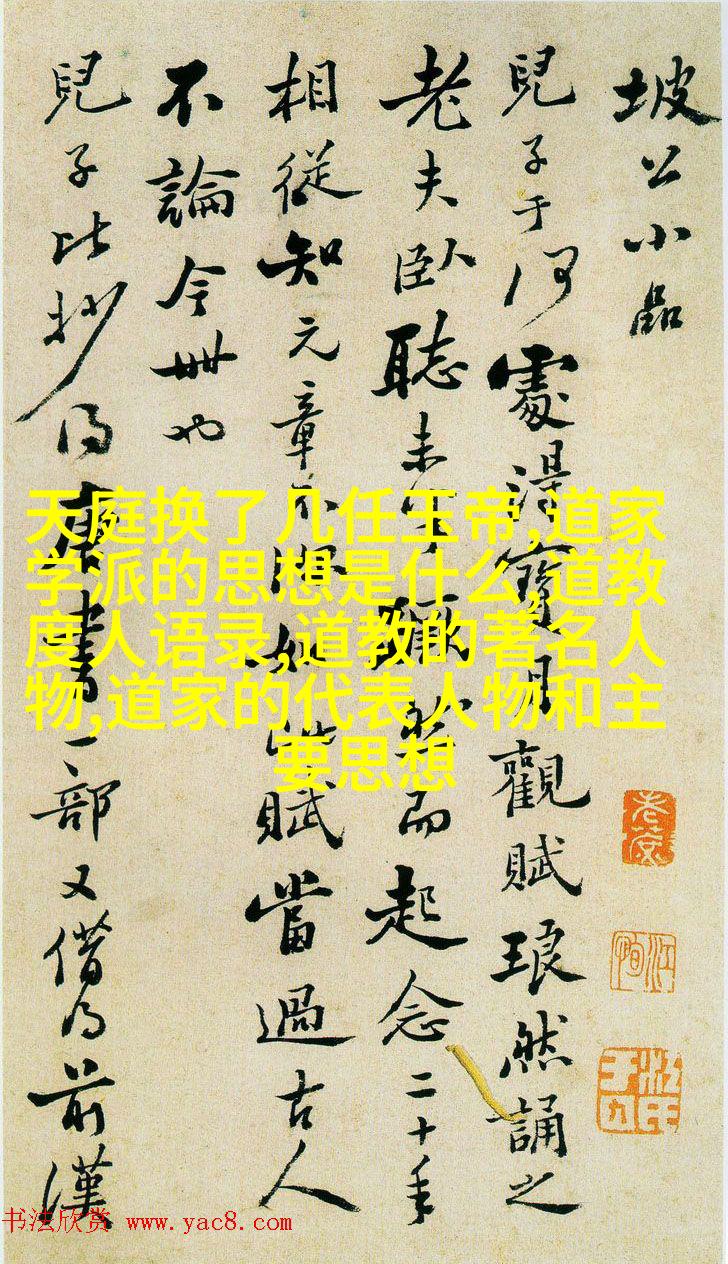 坡公小品
兒子于何處得寶月觀賦琅然誦之
老夫臥聽未半躍然而起念二十年
相從知元章不盡如此賦當過古人
不論今世也
兒子比抄得唐書一部又借得前漢
天庭换了几任玉帝,道家
学派的思想是什么,道教
度人语录,道教的著名人
物,道家的代表人物和主
要思想
书法欣赏 www.yac8.com